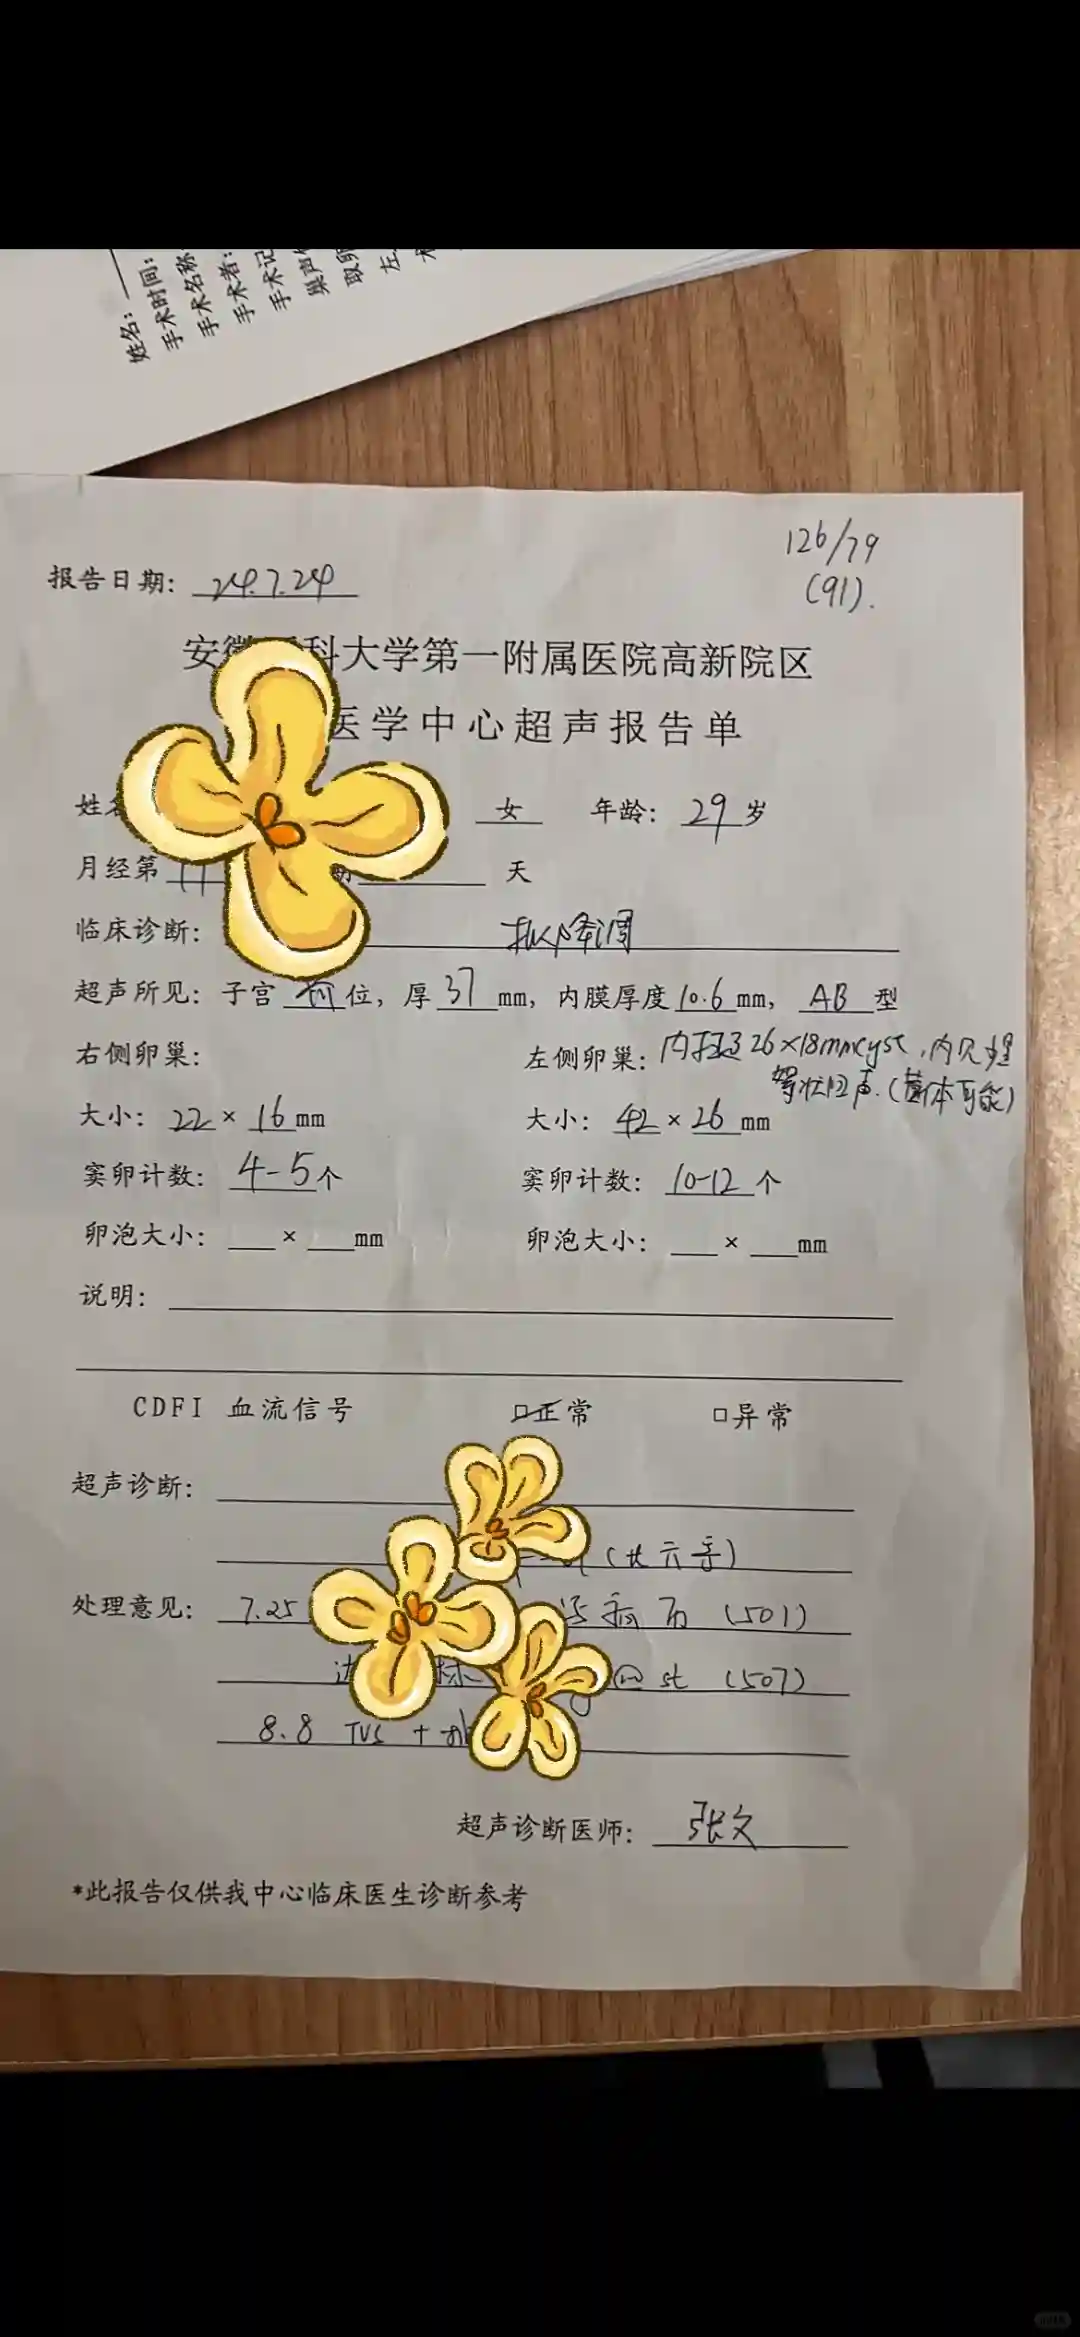 姓名：
手术时间：
手术名称
手术者：
手术记
取卵
左
126/79
(91).
报告日期： 24.7.24
安徽 科大学第一附属医院高新院区
医学中心超声报告单
姓名 女 年龄： 29 岁
月经第 天
临床诊断： 拟降调
超声所见：子宫 前 位，厚 37 mm，内膜厚度 10.6 mm， AB 型
右侧卵巢：
左侧卵巢：内探及26×18mmcyst，内见
状回声.(黄体可能)
大小： 22 × 16 mm
大小： 42 × 26 mm
窦卵计数： 4-5 个
窦卵计数： 10-12 个
卵泡大小： × mm
卵泡大小： × mm
说明：
CDFI 血流信号 □正常 □异常
超声诊断：
处理意见： 7.25 (501)
(507)
8.8 TVS +
超声诊断医师： 张文
*此报告仅供我中心临床医生诊断参考